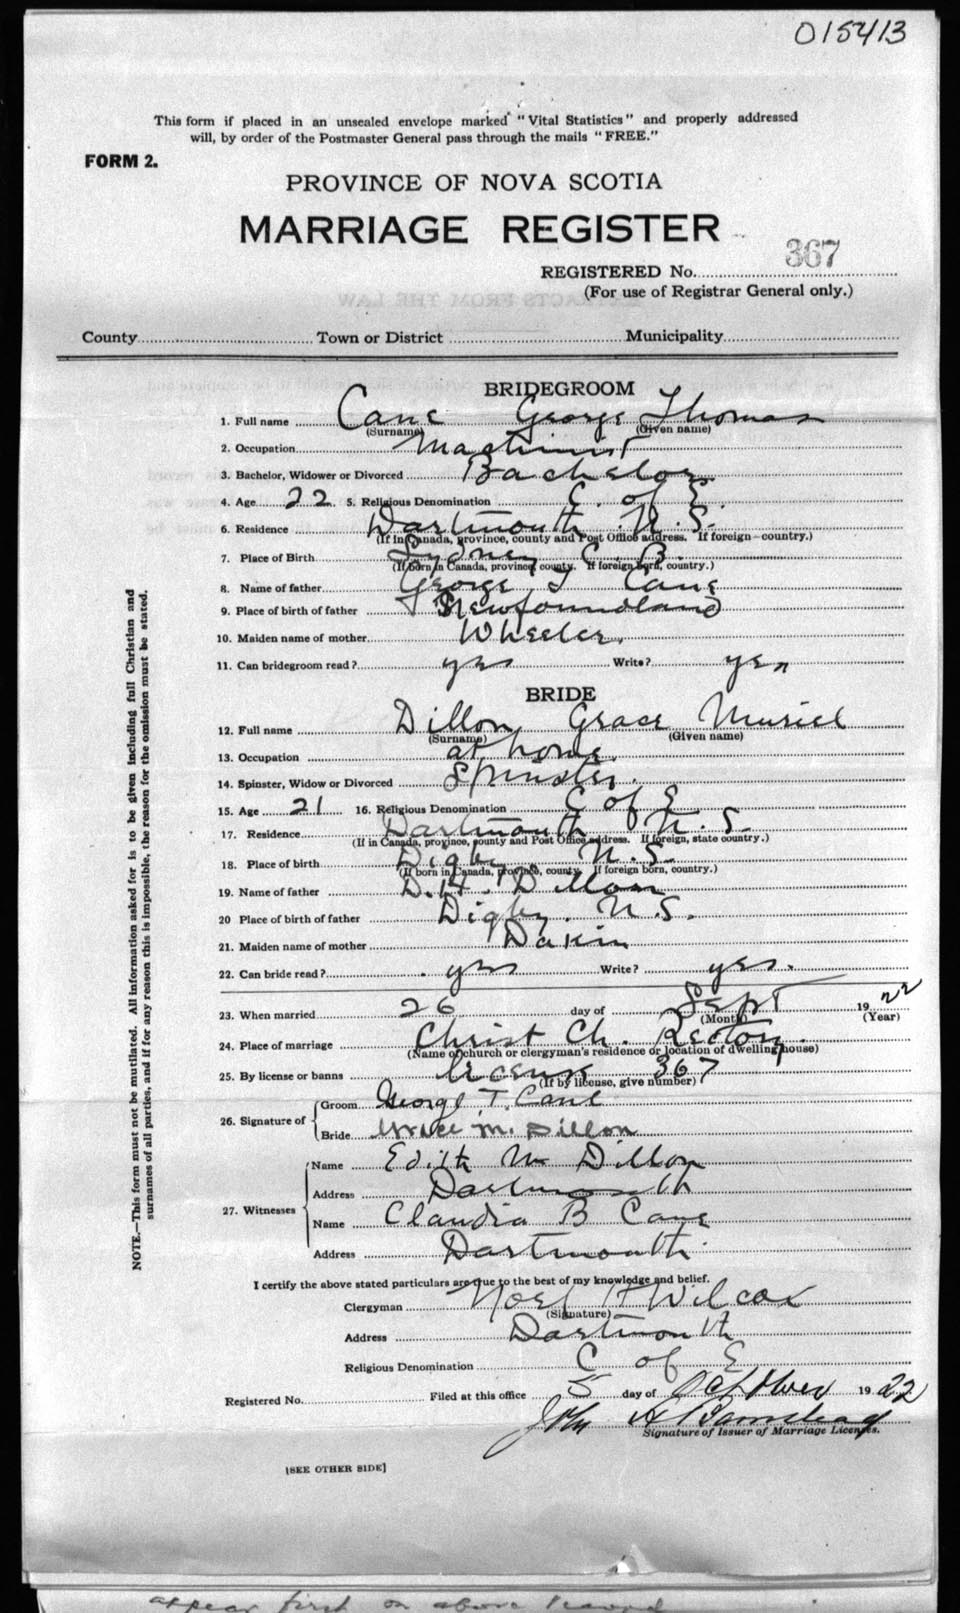 015413
This form if placed in an unsealed envelope marked "Vital Statistics" and properly addressed
will, by order of the Postmaster General pass through the mails "FREE."
FORM 2.
PROVINCE OF NOVA SCOTIA
MARRIAGE REGISTER
REGISTERED No. 367
(For use of Registrar General only.)
County Town or District Municipality
BRIDEGROOM
1. Full name Cane George Thomas
(Surname) (Given name)
2. Occupation Machinist
3. Bachelor, Widower or Divorced Bachelor
4. Age 22 5. Religious Denomination C. of E.
6. Residence Dartmouth N.S.
(If in Canada, province, county and Post Office address. If foreign—country.)
7. Place of Birth Sydney C. B.
(If born in Canada, province, county. If foreign born, country.)
8. Name of father George T Cane
9. Place of birth of father Newfoundland
10. Maiden name of mother Wheeler.
11. Can bridegroom read? yes Write? yes
BRIDE
12. Full name Dillon Grace Muriel
(Surname) (Given name)
13. Occupation at home
14. Spinster, Widow or Divorced Spinster.
15. Age 21 16. Religious Denomination C of E
17. Residence Dartmouth N.S.
(If in Canada, province, county and Post Office address. If foreign, state country.)
18. Place of birth Digby N.S.
(If born in Canada, province, county. If foreign born, country.)
19. Name of father D.H. Dillon
20 Place of birth of father Digby. N.S.
21. Maiden name of mother Dakin
22. Can bride read? yes Write? yes.
23. When married 26 day of Sept 1922
(Month) (Year)
24. Place of marriage Christ Ch. Rectory.
(Name of church or clergyman's residence or location of dwelling house)
25. By license or banns license 367
(If by license, give number)
26. Signature of
Groom George T. Cane
Bride Grace M. Dillon
27. Witnesses
Name Edith M Dillon
Address Dartmouth
Name Claudia B Cane
Address Dartmouth
I certify the above stated particulars are true to the best of my knowledge and belief.
Clergyman Noel H Wilcox
(Signature)
Address Dartmouth
Religious Denomination C of E
Registered No. Filed at this office 5 day of October 1922
John A
Signature of Issuer of Marriage Licenses.
[SEE OTHER SIDE]
NOTE.—This form must not be mutilated. All information asked for is to be given including full Christian and
surnames of all parties, and if for any reason this is impossible, the reason for the omission must be stated.
appear first on above record